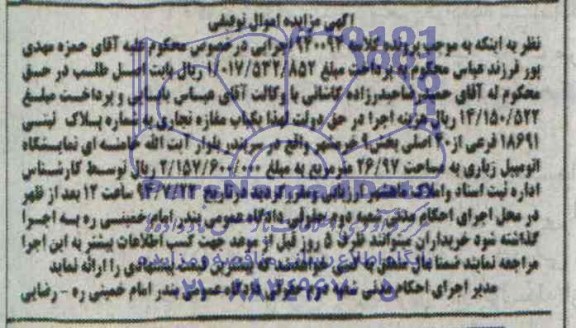 آگهی مزایده اموال توقیفی
نظر به اینکه به موجب پرونده کلاسه ۹۲۰۰۹۲ اجرایی درخصوص محکوم علیه آقای حمزه مهدی
پور فرزند عباس محکوم به پرداخت مبلغ ۰۱۷/۵۳۲/۸۵۲ ریال بابت اصل طلب در حق
محکوم له آقای حمیدرضا حیدرزاده کاشانی با وکالت آقای عباس و پرداخت مبلغ
۱۴/۱۵۰/۵۲۲ ریال هزینه اجرا در حق دولت لهذا یکباب مغازه تجاری به شماره پلاک ثبتی
۱۸۶۹۱ فرعی از اصلی بخش خرمشهر واقع در سربندر بلوار آیت الله خامنه ای نمایشگاه
اتومبیل زیاری به مساحت ۲۶/۹۷ مترمربع به مبلغ ۲/۱۵۷/۶۰۰/۰۰۰ ریال توسط کارشناس
اداره ثبت اسناد و املاک ماهشهر ارزیابی و مقرر گردید در تاریخ ساعت ۱۲ بعد از ظهر
در محل اجرای احکام مدنی شعبه دوم حقوقی دادگاه عمومی بندر امام خمینی ره به اجرا
گذاشته شود خریداران میتوانند ظرف ۵ روز قبل از موعد جهت کسب اطلاعات بیشتر به این اجرا
مراجعه نمایند ضمنا مال متعلق به کسی خواهد شد که بیشترین قیمت پیشنهادی را ارائه نماید
مدیر اجرای احکام مدنی شعبه دوم حقوقی دادگاه عمومی بندر امام خمینی ره - رضایی